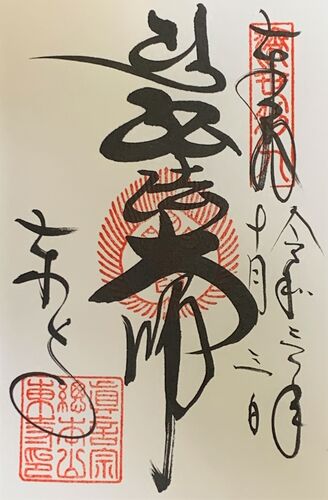 奉拝
令和三年
十月三日
弘法大師
東寺
眞言宗
總本山
東寺印